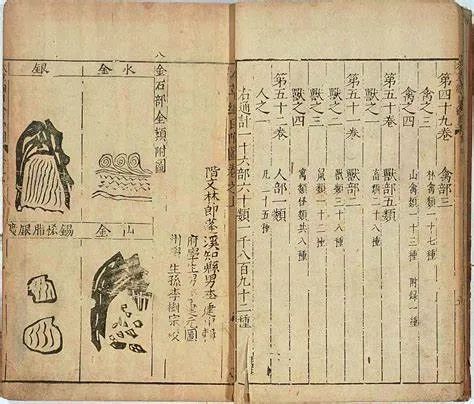 第四十九卷 禽部三
禽之三 林禽類一十七種
禽之四 山禽類一十三種 附錄一種
第五十卷 獸部五類
獸之一 畜類二十八種
第五十一卷 獸部
獸之二 獸類三十八種
獸之三 鼠類一十二種
獸之四
第五十二卷 人部一類
人之一 凡三十五種
右通計一十六部六十類一千八百九十二種
階文林郎蓬溪知縣男李建中輯
府學生
生孫李樹宗校
金石部金類附圖
水金
銀
山金
錫恡脂銀